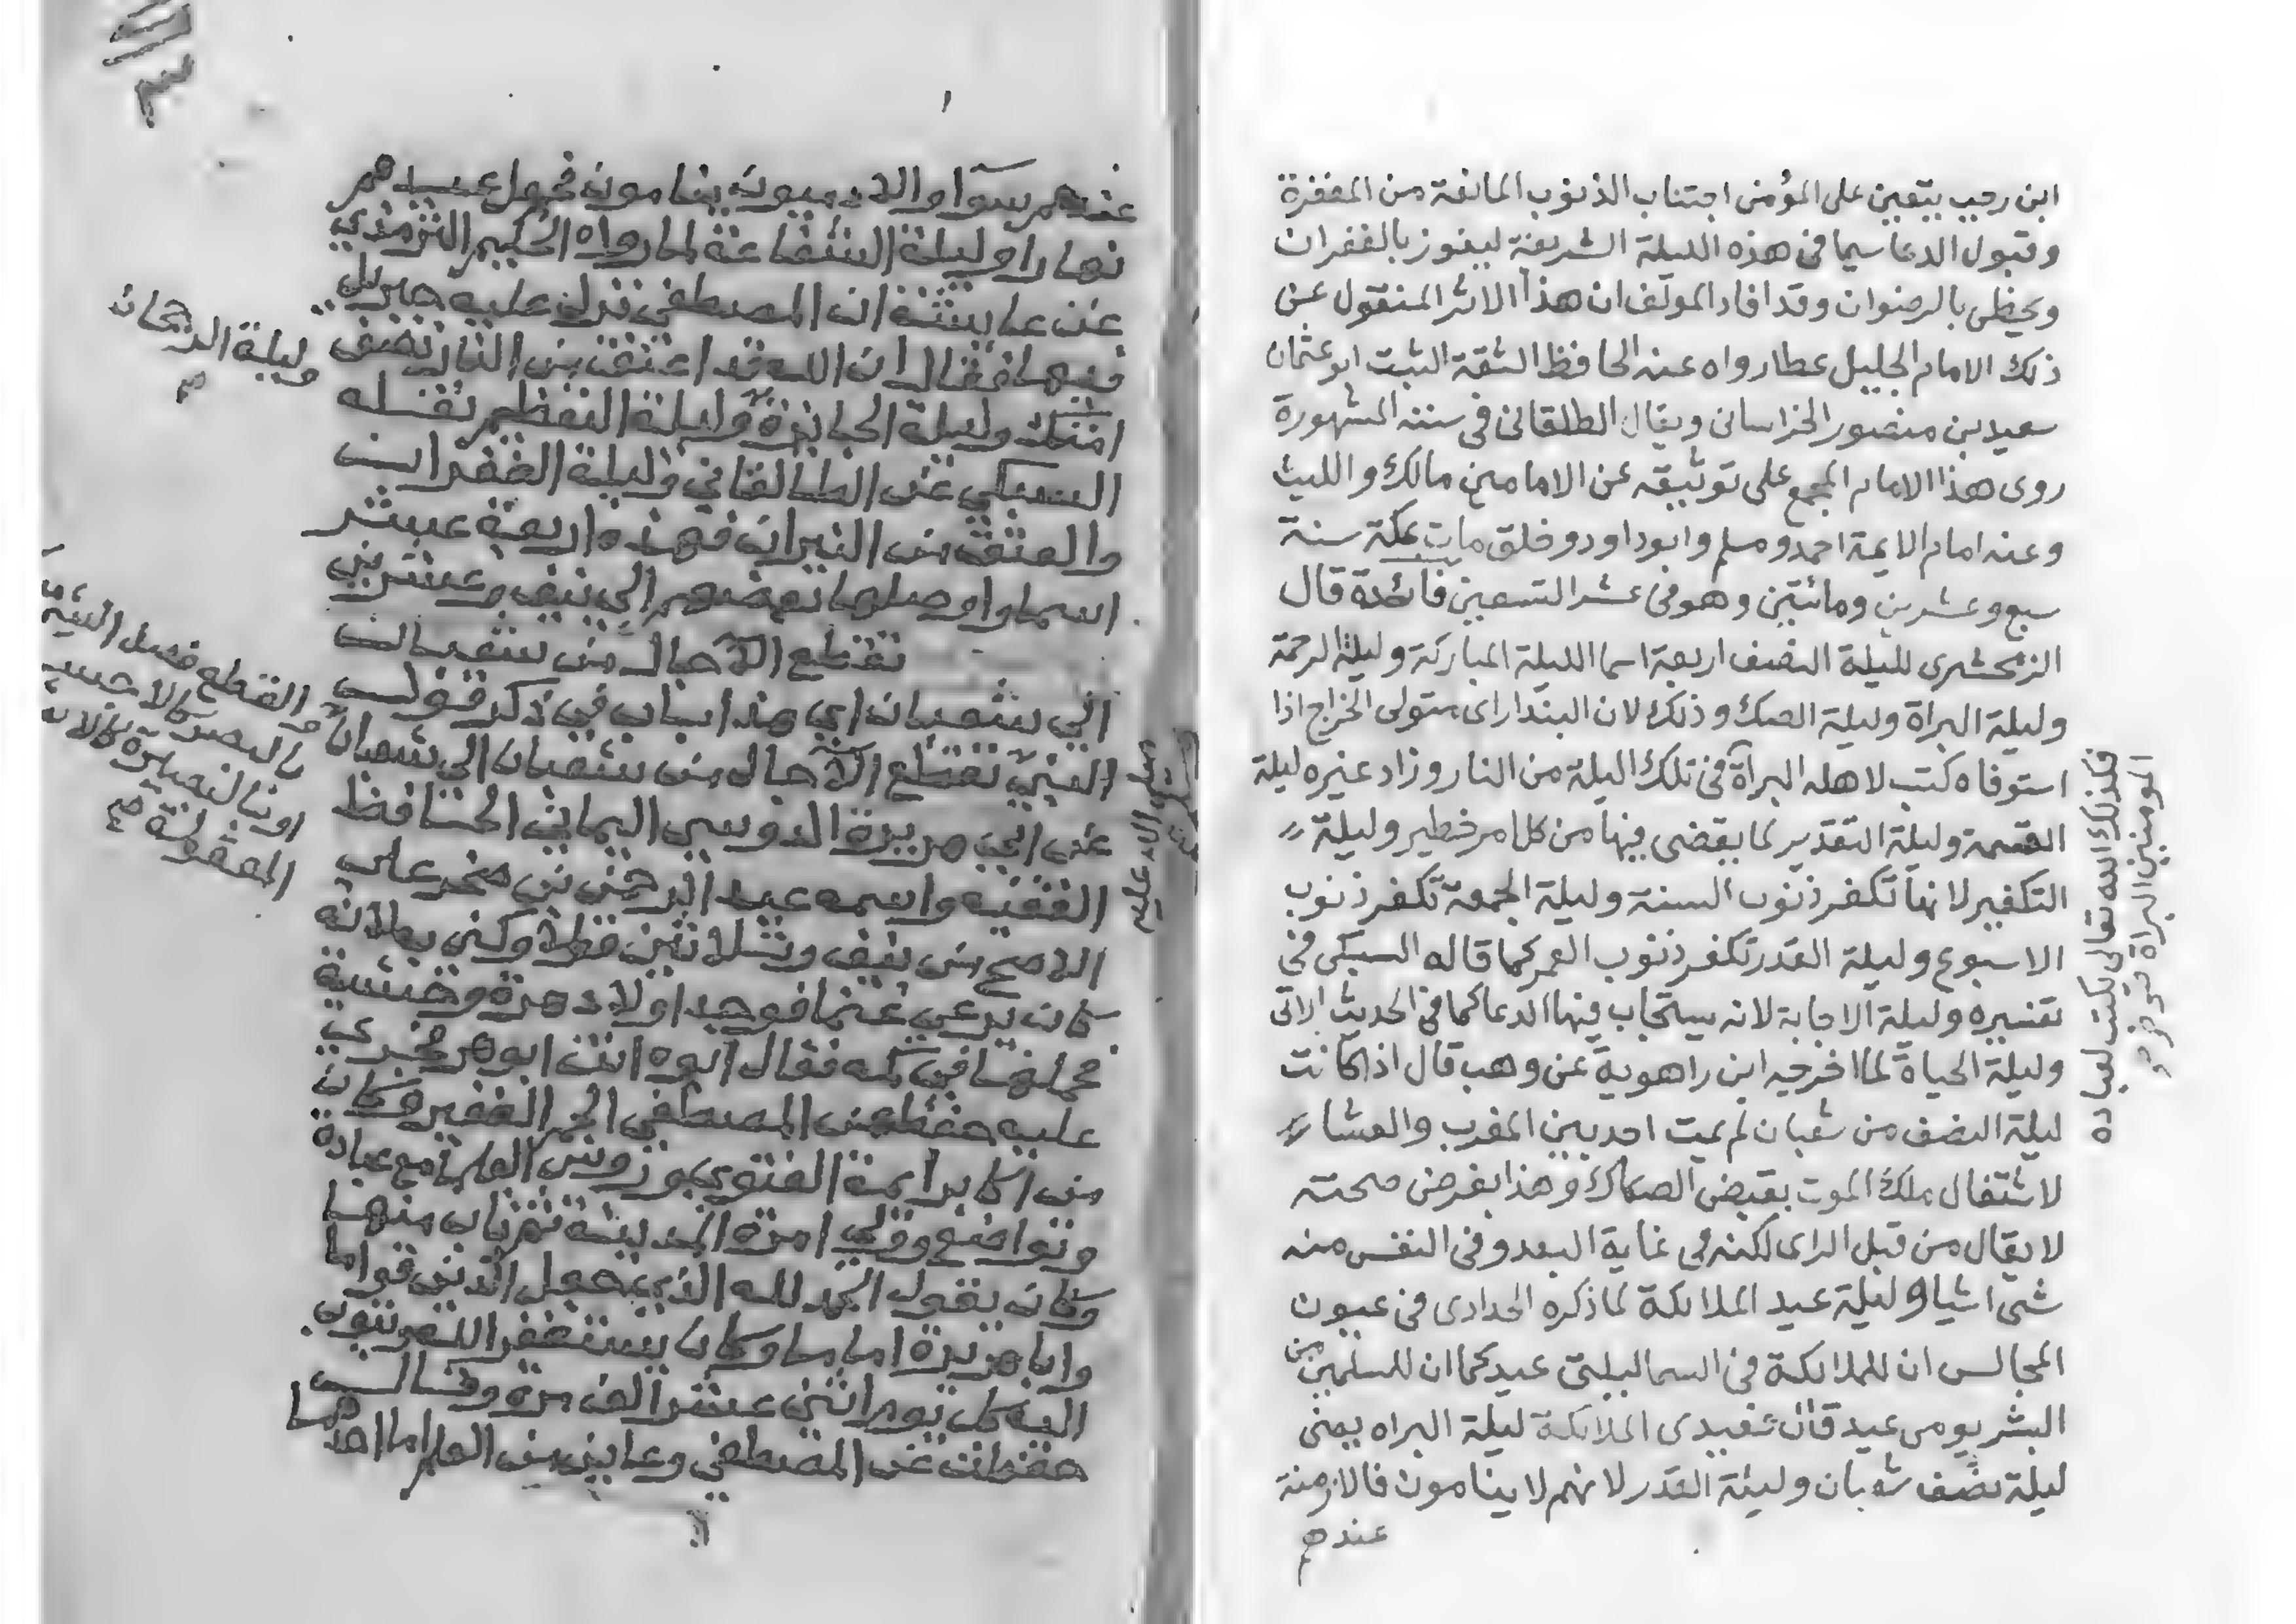 ابن رجب يتعين على المؤمن اجتناب الذنوب المانعة من المغفرة
وقبول الدعا سيما فى هذه الليلة الشريفة ليفوز بالغفران
ويحظى بالرضوان وقد افاد المولف ان هذا الاثر المنقول عن
ذلك الامام الجليل عطا رواه عنه الحافظ الثقة الثبت ابو عثمان
سعيد بن منصور الخراسانى ويقال الطلقانى فى سننه المشهورة
روى هذا الامام المجمع على توثيقه عن الامامين مالك والليث
وعنه امام الايمة احمد ومسلم وابو داود وخلق مات بمكة سنة
سبع وعشرين ومائتين وهو فى عشر التسعين فائدة قال
الزمخشرى لليلة النصف اربعة اسما الليلة المباركة وليلة الرحمة
وليلة البراة وليلة الصك وذلك لان البندار اى متولى الخراج اذا
استوفاه كتب لاهله البراة فى تلك اليلة من النار وزاد غيره ليلة
القسمة وليلة التقدير لما يقضى فيها من كل امر خطير وليلة
التكفير لانها تكفر ذنوب السنة وليلة الجمعة تكفر ذنوب
الاسبوع وليلة القدر تكفر ذنوب العمر كما قاله السبكى فى
تفسيره وليلة الاجابة لانه يستجاب فيها الدعا كما فى الحديث الاتى
وليلة الحياة لما اخرجه ابن راهوية عن وهب قال اذا كانت
ليلة النصف من شعبان لم يمت احد بين المغرب والعشا
لاشتغال ملك الموت بقبض الصكاك وهذا بفرض صحته
لا يقال من قبل الراى لكنه فى غاية البعد وفى النفس منه
شى اشيا وليلة عيد الملائكة لما ذكره الحدادى فى عيون
المجالس ان للملائكة فى السما ليلتى عيد كما ان للمسلمين من
البشر يومى عيد قال فعيدى الملائكة ليلة البراه يعنى
ليلة نصف شعبان وليلة القدر لانهم لا ينامون فالازمنة
عندهم
فكذلك الله تعالى يكتب لعباده
المومنين البراة
عندهم سوآ والادميون ينامون فجعل عيدهم
نهارا وليلة الشفاعة لما رواه الحكيم الترمذي
عن عايشة ان المصطفى نزل عليه جبريل
فيها فقال ان الله قد اعتق من النار نصف
امتك وليلة الجائزة وليلة التعظيم نقله
السبكي عن الطالقاني وليلة الغفران
والعتق من النيران فهذه اربعة عشر
اسما واوصلها بعضهم الى نيف وعشرين
تقطع الآجال من شعبان
الى شعبان اي هذا باب في ذكر قول
النبي تقطع الآجال من شعبان الى شعبان
عن ابي هريرة الدوسي اليماني الحافظ
الفقيه واسمه عبد الرحمن بن صخر على
الاصح من نيف وثلاثين قولا وكني به لانه
كان يرعى غنما فوجد اولاد هرة وحشية
فجعلها في كمه فقال ابوه انت ابو هر فجرى
عليه حفظ عن المصطفى الجم الغفير وكان
من اكابر ايمة الفتوى ومن العلما مع عبادة
وتواضع وولي امرة المدينة ثم ناب منها
وكان يقول الحمد لله الذي جعل الدين قواما
وابا هريرة اماما وكان يستغفر الله ويتوب
اليه كل يوم اثني عشر الف مرة وقال
حفظت عن المصطفى وعاين من العلم اما احدهما
وليلة الرجحان
القطع فصل الشي
بالبصر كالاجسام
او بالبصيرة كالان
المعقولة